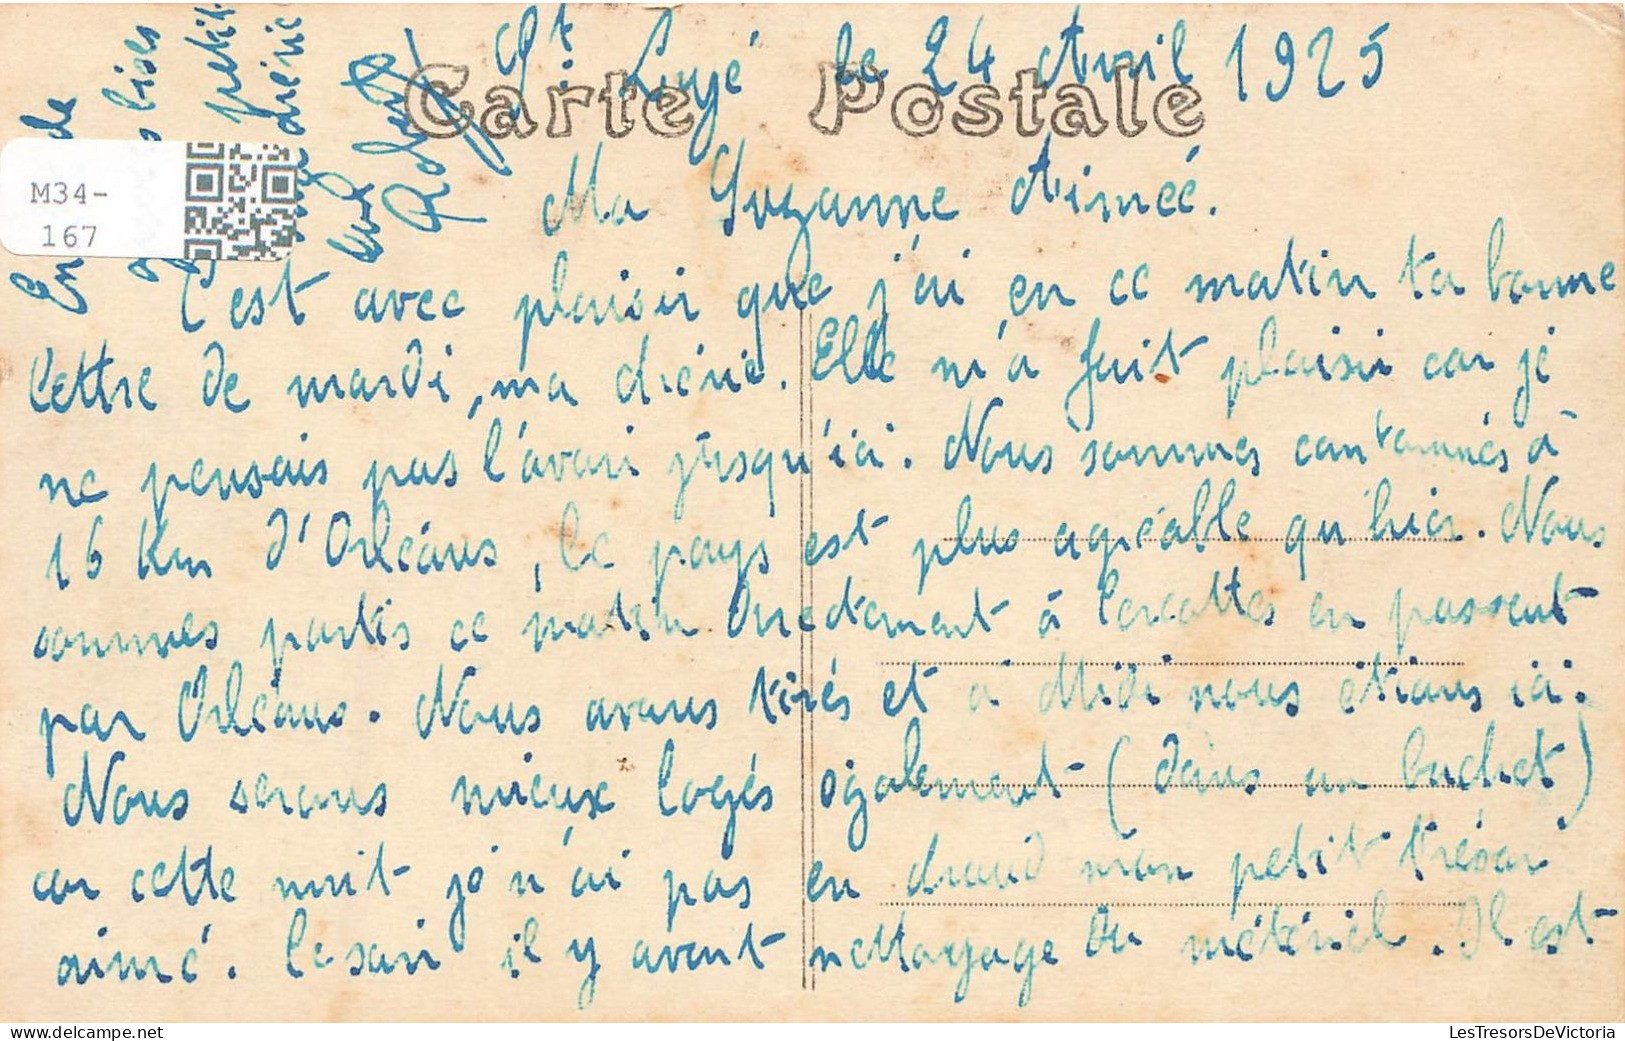 Carte Postale
St Lyé le 24 Avril 1925
Ma Suzanne Aimée.
C'est avec plaisir que j'ai eu ce matin ta bonne
lettre de mardi, ma chérie. Elle m'a fait plaisir car je
ne pensais pas l'avoir jusqu'ici. Nous sommes cantonnés à
16 Km d'Orléans, le pays est plus agréable qu'hier. Nous
sommes partis ce matin directement à Cercottes en passant
par Orléans. Nous avons tirés et à Midi nous étions ici.
Nous serons mieux logés également (dans un
car cette nuit je n'ai pas eu chaud mon petit trésor
aimé. Ce soir il y avait nettoyage du matériel. Il est
En
de
lises
petit
chérie
Robert
M34-
167
LesTresorsDeVictoria
www.delcampe.net